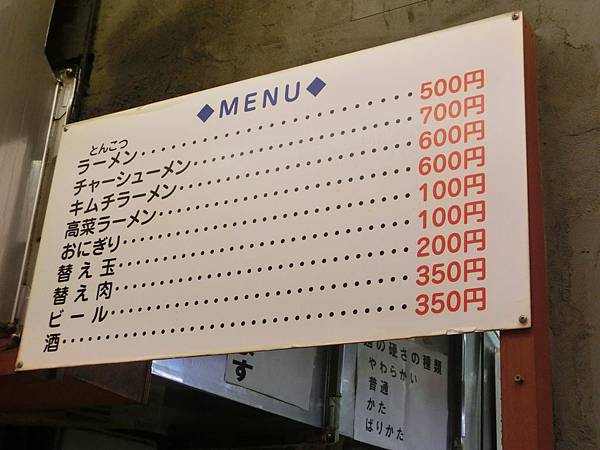 ◆MENU◆
とんこつ
ラーメン 500円
チャーシューメン 700円
キムチラーメン 600円
高菜ラーメン 600円
おにぎり 100円
替え玉 100円
替え肉 200円
ビール 350円
酒 350円
す
の硬さの種類
やわらかい
普通
かた
ばりかた